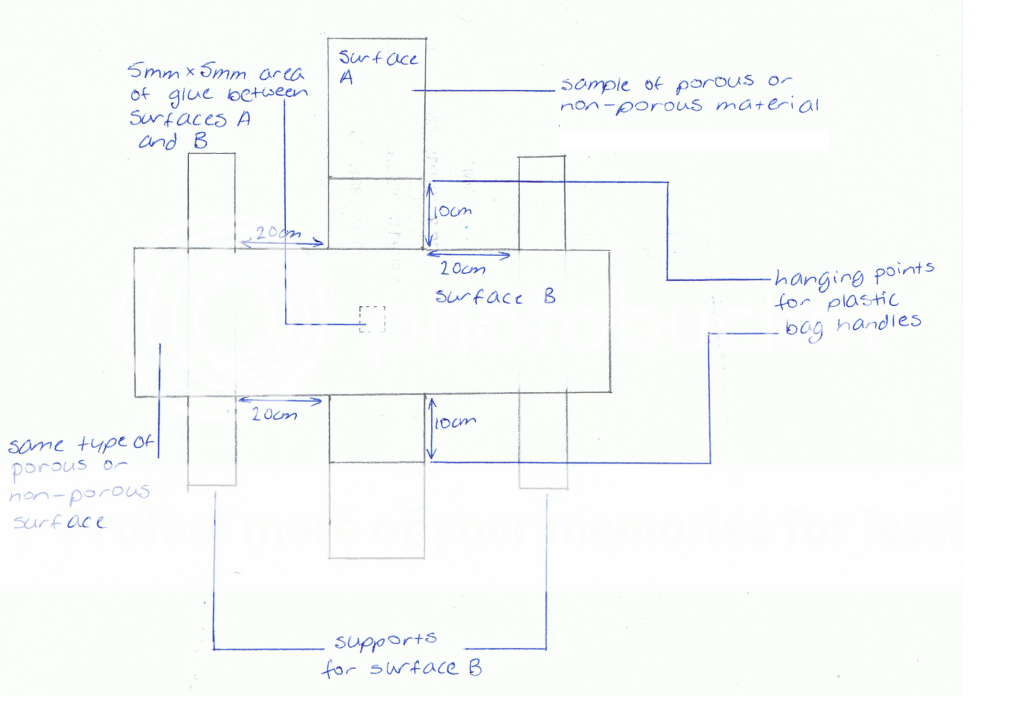 surface
A
5mm x 5mm area
of glue between
surfaces A
and B
sample of porous or
non-porous material
10cm
20cm
20cm
surface B
hanging points
for plastic
bag handles
20cm
10cm
same type of
porous or
non-porous
surface
Protect more of your memories for less!
supports
for surface B